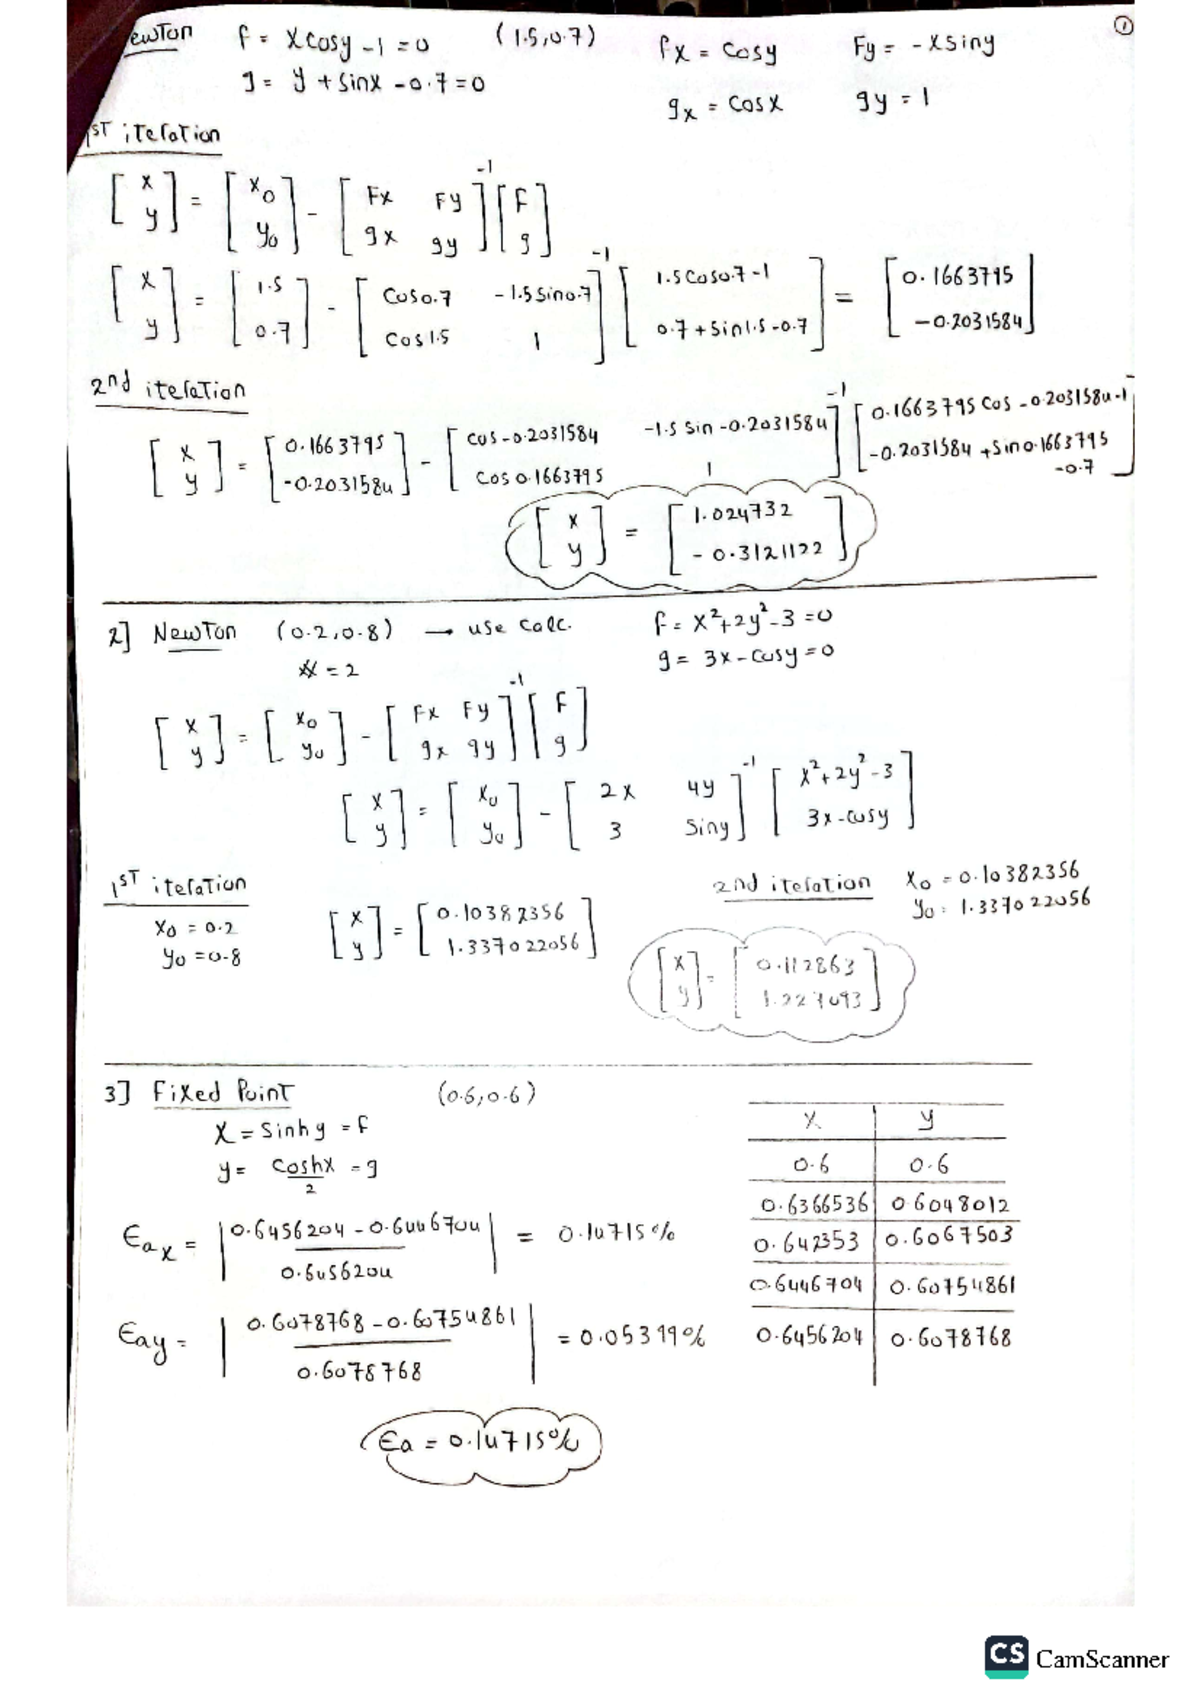 ewTon f = xcosy -1 = 0 (1.5,0.7) fx = cosy Fy = -xsiny ①
g = y + sinx -0.7=0 gx = cosx gy = 1
1ST iteration
[x y] = [x0 y0] - [Fx Fy gx gy]-1 [F g]
[x y] = [1.5 0.7] - [cos0.7 -1.5sin0.7 cos1.5 1]-1 [1.5cos0.7-1 0.7+sin1.5-0.7] = [0.1663795 -0.2031584]
2nd iteration
[x y] = [0.1663795 -0.2031584] - [cos-0.2031584 -1.5 sin -0.2031584 cos0.1663795 1]-1 [0.1663795 cos -0.2031584-1 -0.2031584 +sin0.1663795 -0.7]
[x y] = [1.024732 -0.3121122]
2] Newton (0.2,0.8) → use calc. f = x²+2y²-3=0
# = 2 g = 3x-cosy=0
[x y] = [x0 y0] - [Fx Fy gx gy]-1 [F g]
[x y] = [x0 y0] - [2x 4y 3 siny]-1 [x²+2y²-3 3x-cosy]
1ST iteration 2nd iteration x0 = 0.10382356
x0 = 0.2 [x y] = [0.10382356 1.337022056] y0 = 1.337022056
y0 = 0.8
[x y] = [0.112863 1.227093]
3] Fixed Point (0.6,0.6)
x = sinhy = f
y = coshx/2 = g
x y
0.6 0.6
0.6366536 0.6048012
0.642353 0.6067503
0.6446704 0.60754861
0.6456204 0.6078768
Єax = |0.6456204 - 0.6446704 / 0.6456204| = 0.14715%
Єay = |0.6078768 - 0.60754861 / 0.6078768| = 0.05399%
Єa = 0.14715%
CS CamScanner